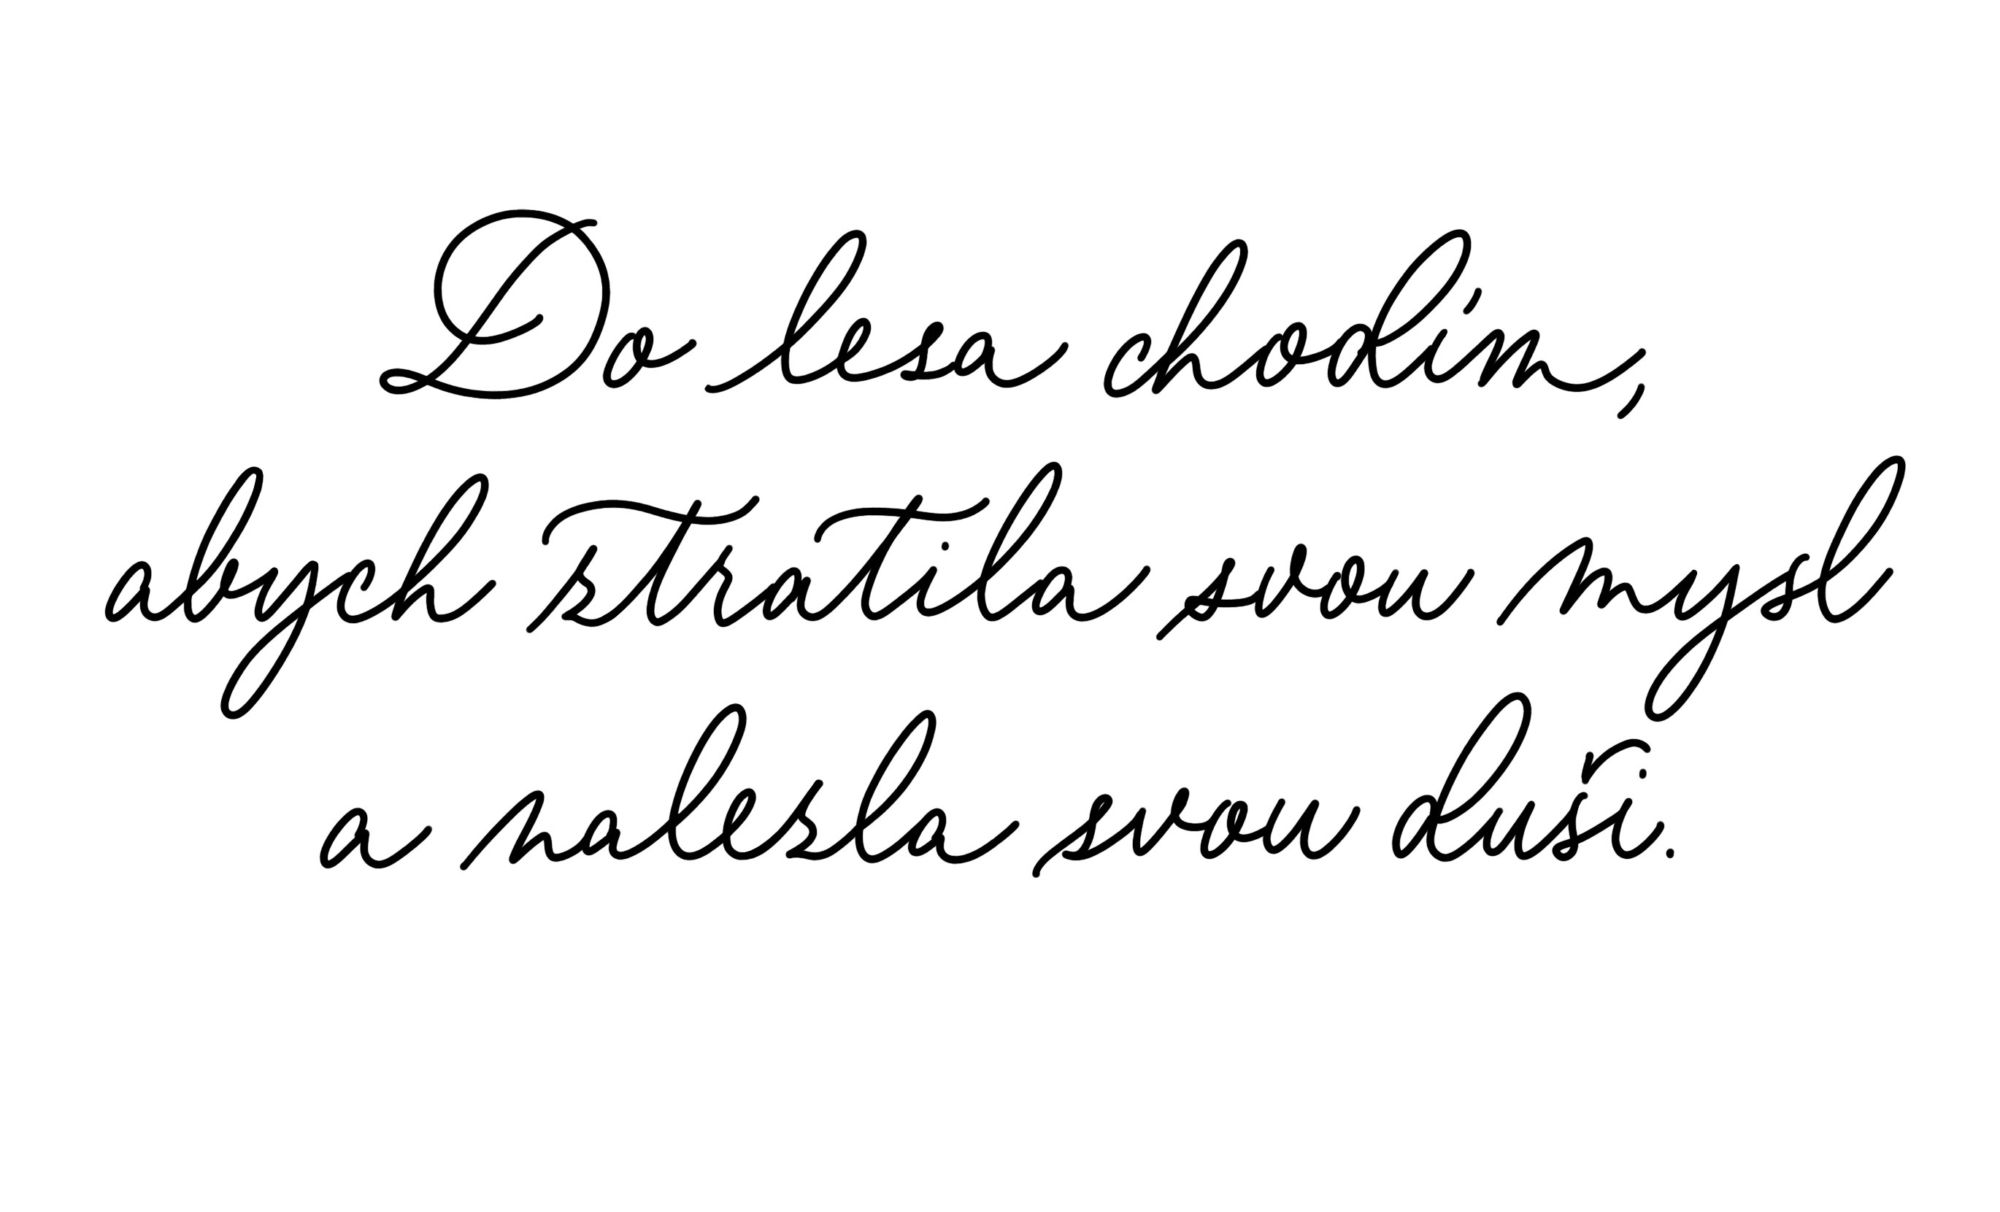 Do lesa chodím,
abych ztratila svou mysl
a nalezla svou duši.